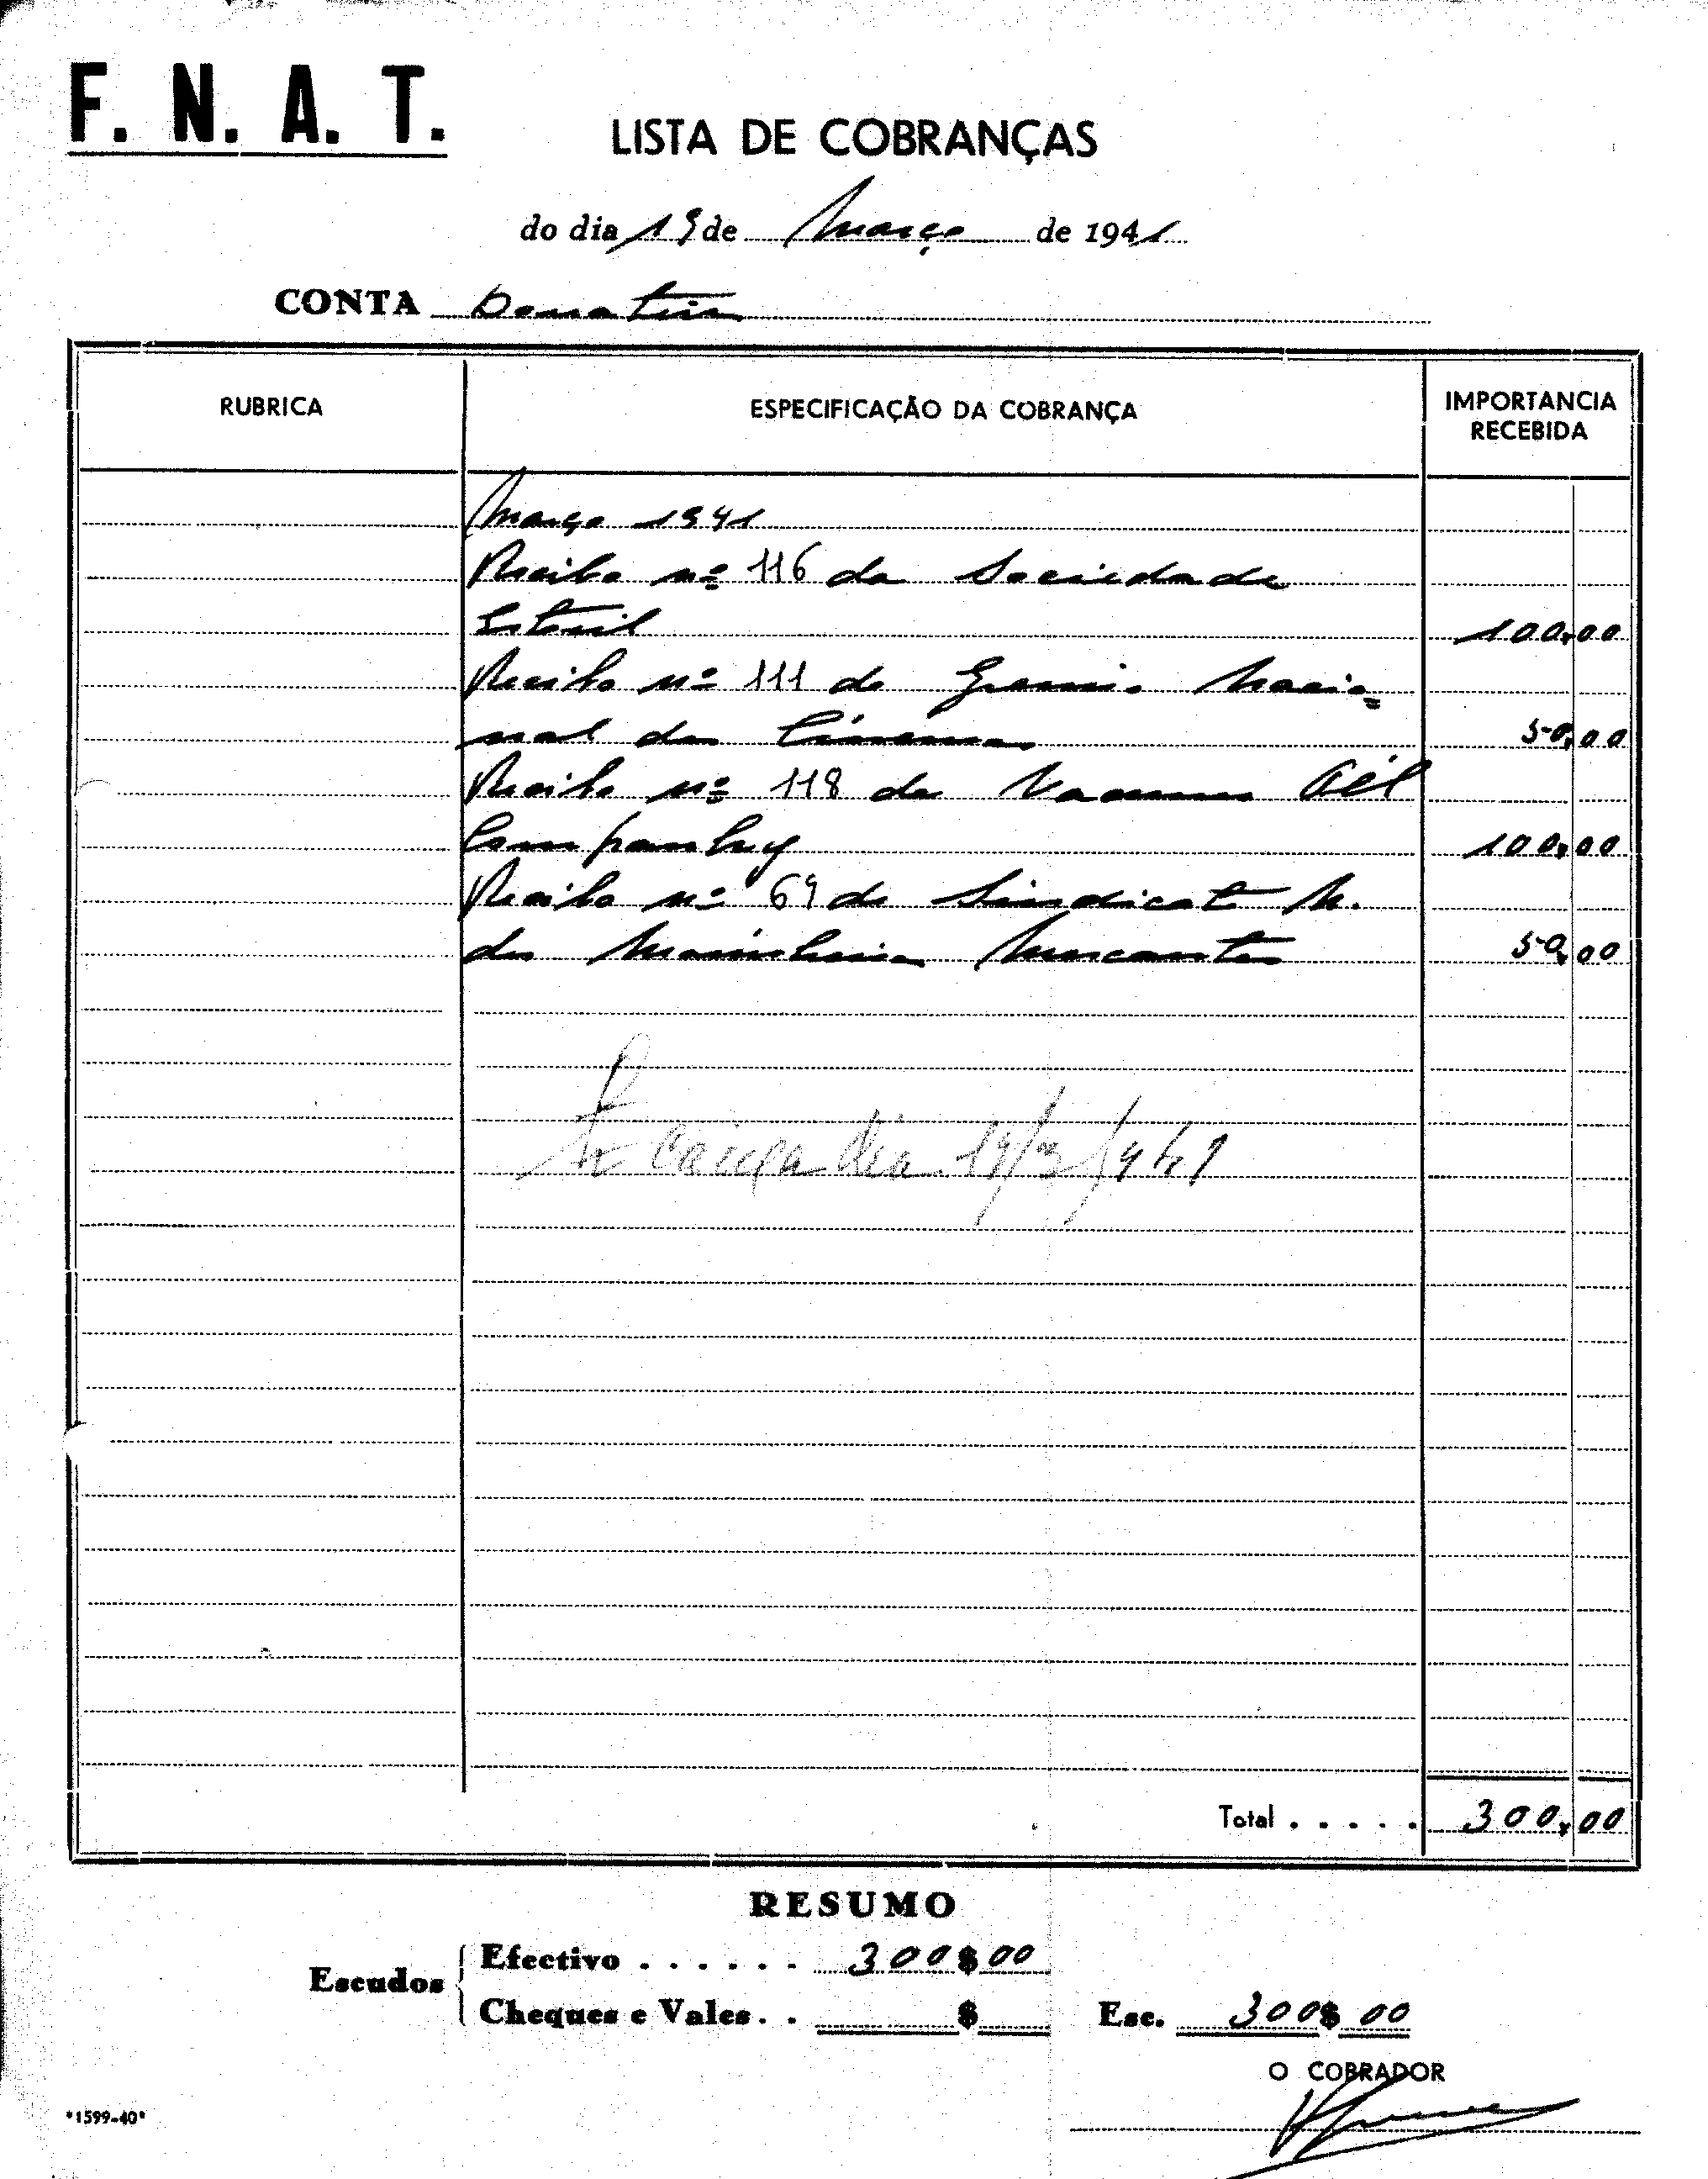 F. N. A. T.
LISTA DE COBRANÇAS
do dia 19 de Março de 1941
CONTA Donativos
RUBRICA
ESPECIFICAÇÃO DA COBRANÇA
IMPORTANCIA
RECEBIDA
Março 1941
Recibo nº 116 da Sociedade
Estoril 100,00
Recibo nº 111 do Gremio Nacio=
nal de Cinemas 50,00
Recibo nº 118 da Vacuum Oil
Company 100,00
Recibo nº 69 do Sindicato N.
da Marinheiros Mercantes 50,00
caixa dia 19/3/941
Total . . . . . 300,00
RESUMO
Escudos
Efectivo . . . . . . 300$00
Cheques e Vales. . $
Esc. 300$00
O COBRADOR
*1599-40*